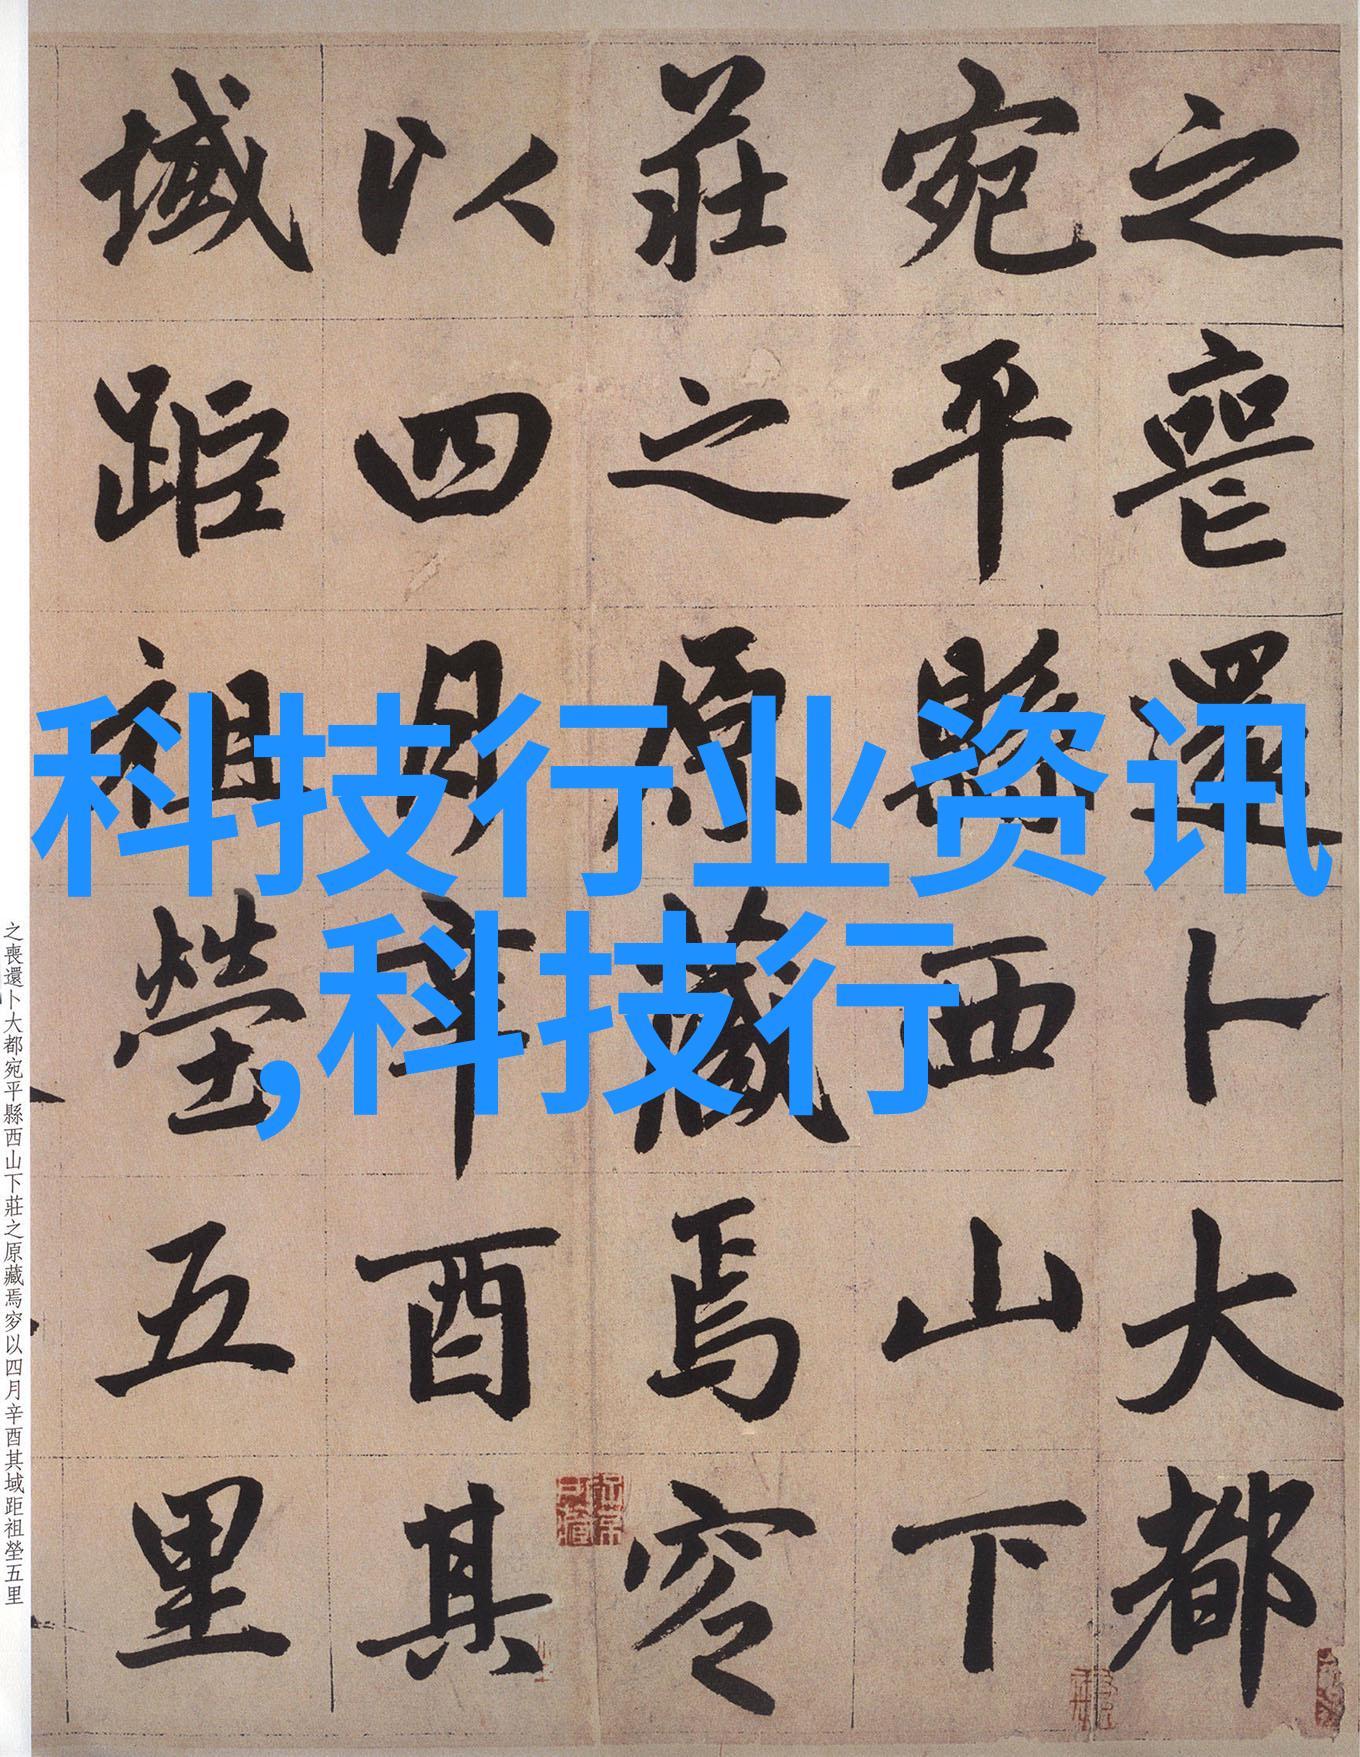 之喪還卜大都
宛平縣西山下
莊之原藏焉窆
以四月辛酉其
域距祖塋五里
科技行业资讯
,科技行
之喪還卜大都宛平縣西山下莊之原藏焉穸以四月辛酉其域距祖塋五里